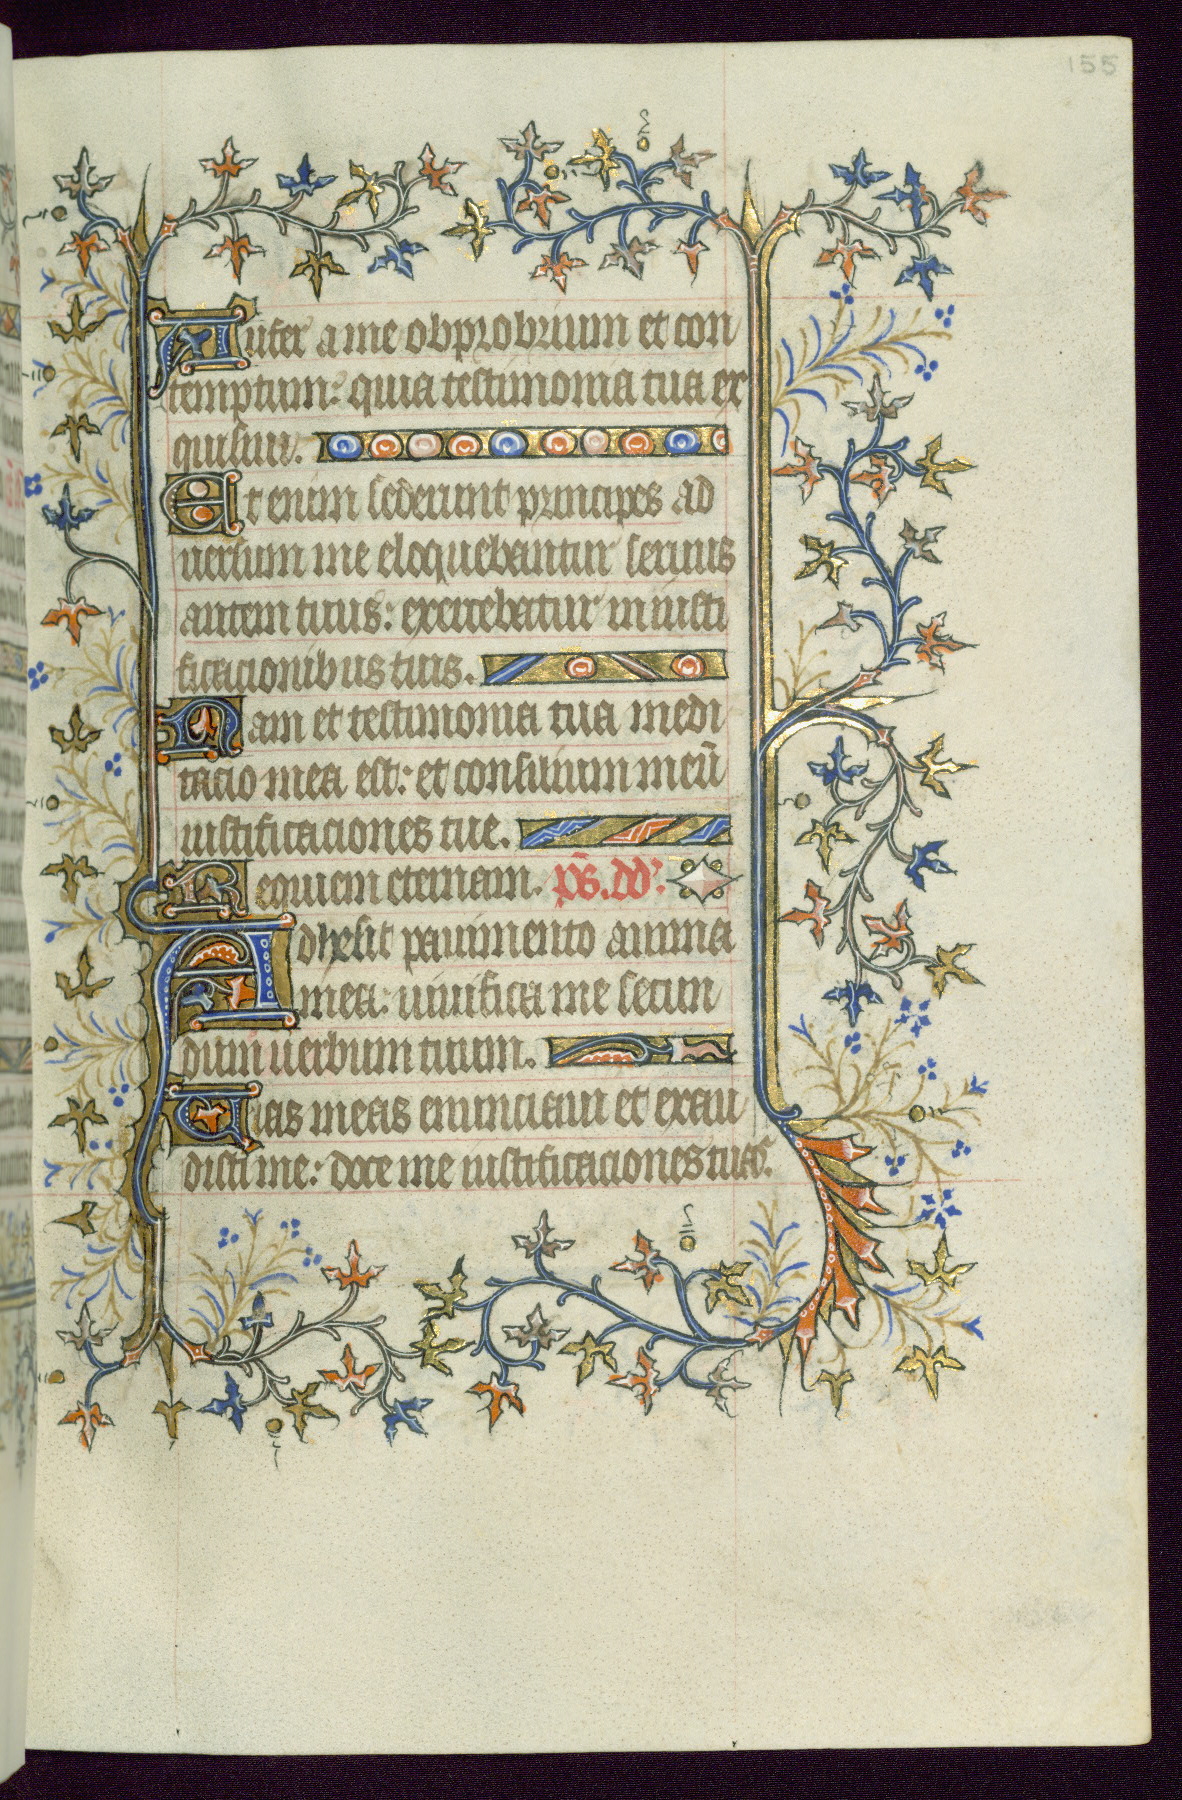 155
Aufer a me obprobrium et con
temptum: quia testimonia tua ex
quisiui.
Et enim sederunt principes ad
uersum me eloquebantur seruus
autem tuus: exercebatur in iusti
ficacionibus tuis.
Nam et testimonia tua medi
tacio mea est: et consilium meū
iustificaciones tue.
Requiem eternam. ps. dd'.
Adhesit pauimento anima
mea: uiuifica me secun
dum uerbum tuum.
Uias meas enunciaui et exau
disti me: doce me iustificaciones tuas.